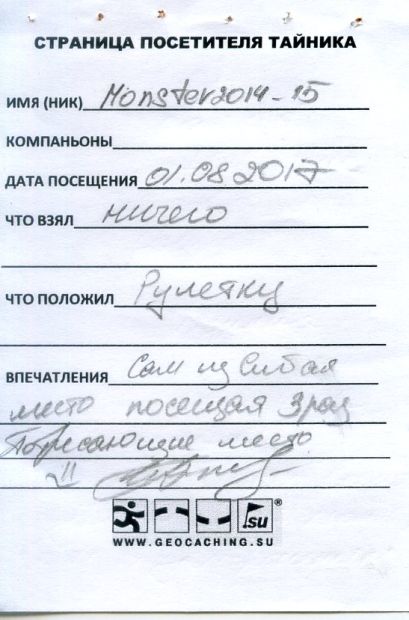 СТРАНИЦА ПОСЕТИТЕЛЯ ТАЙНИКА
ИМЯ (НИК) Monster2014-15
КОМПАНЬОНЫ
ДАТА ПОСЕЩЕНИЯ 01.08.2017
ЧТО ВЗЯЛ ничего
ЧТО ПОЛОЖИЛ Рулетку
ВПЕЧАТЛЕНИЯ Сам из Сибая
место посещая 3 раз
Потресающие место
!!
.su
WWW.GEOCACHING.SU